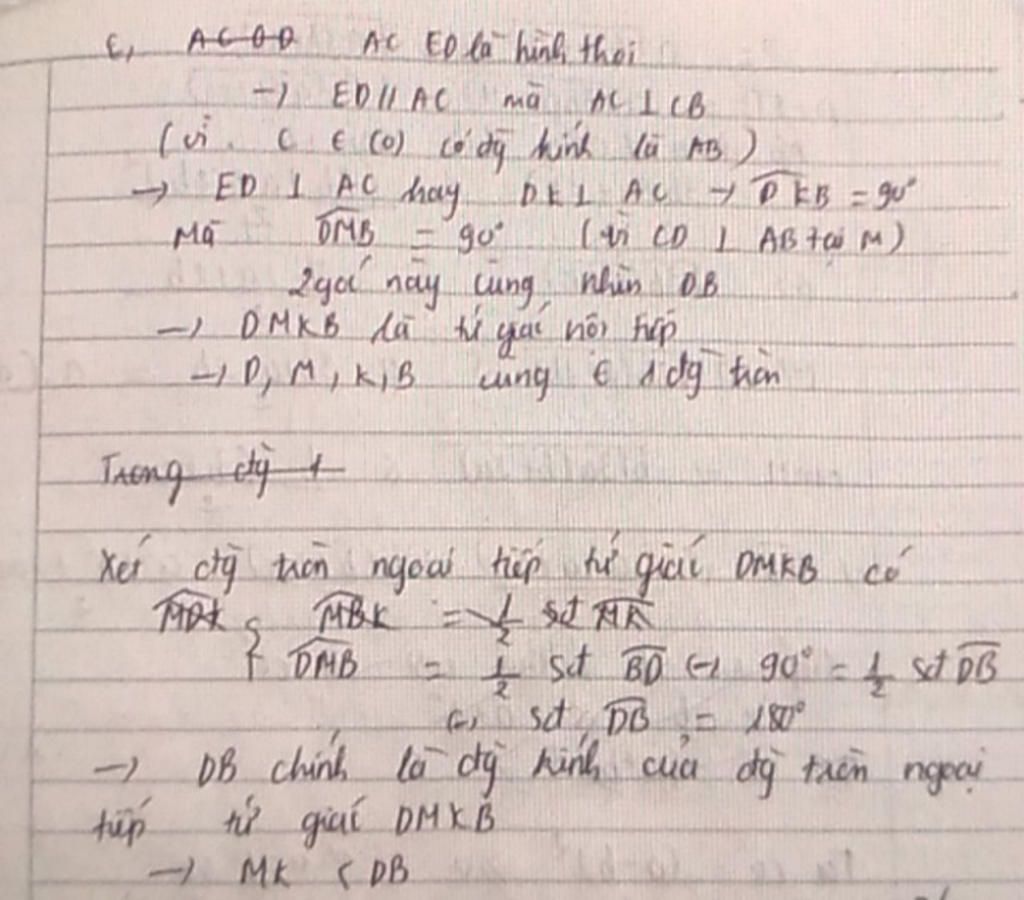 c, ACOD AC ED là hình thoi
→ ED // AC mà AC ⊥ CB
(vì C ∈ (O) có đg kính là AB)
→ ED ⊥ AC hay DK ⊥ AC → DKB = 90°
Mà DMB = 90° (vì CD ⊥ AB tại M)
2 góc này cùng nhìn DB
→ DMKB là tứ giác nội tiếp
→ D, M, K, B cùng ∈ 1 đg tròn
Trong đg t
Xét đg tròn ngoại tiếp tứ giác DMKB có
MDK { MBK = 1/2 sđ MK
DMB = 1/2 sđ BD ↔ 90° = 1/2 sđ DB
↔ sđ DB = 180°
→ DB chính là đg kính của đg tròn ngoại
tiếp tứ giác DMKB
→ MK < DB